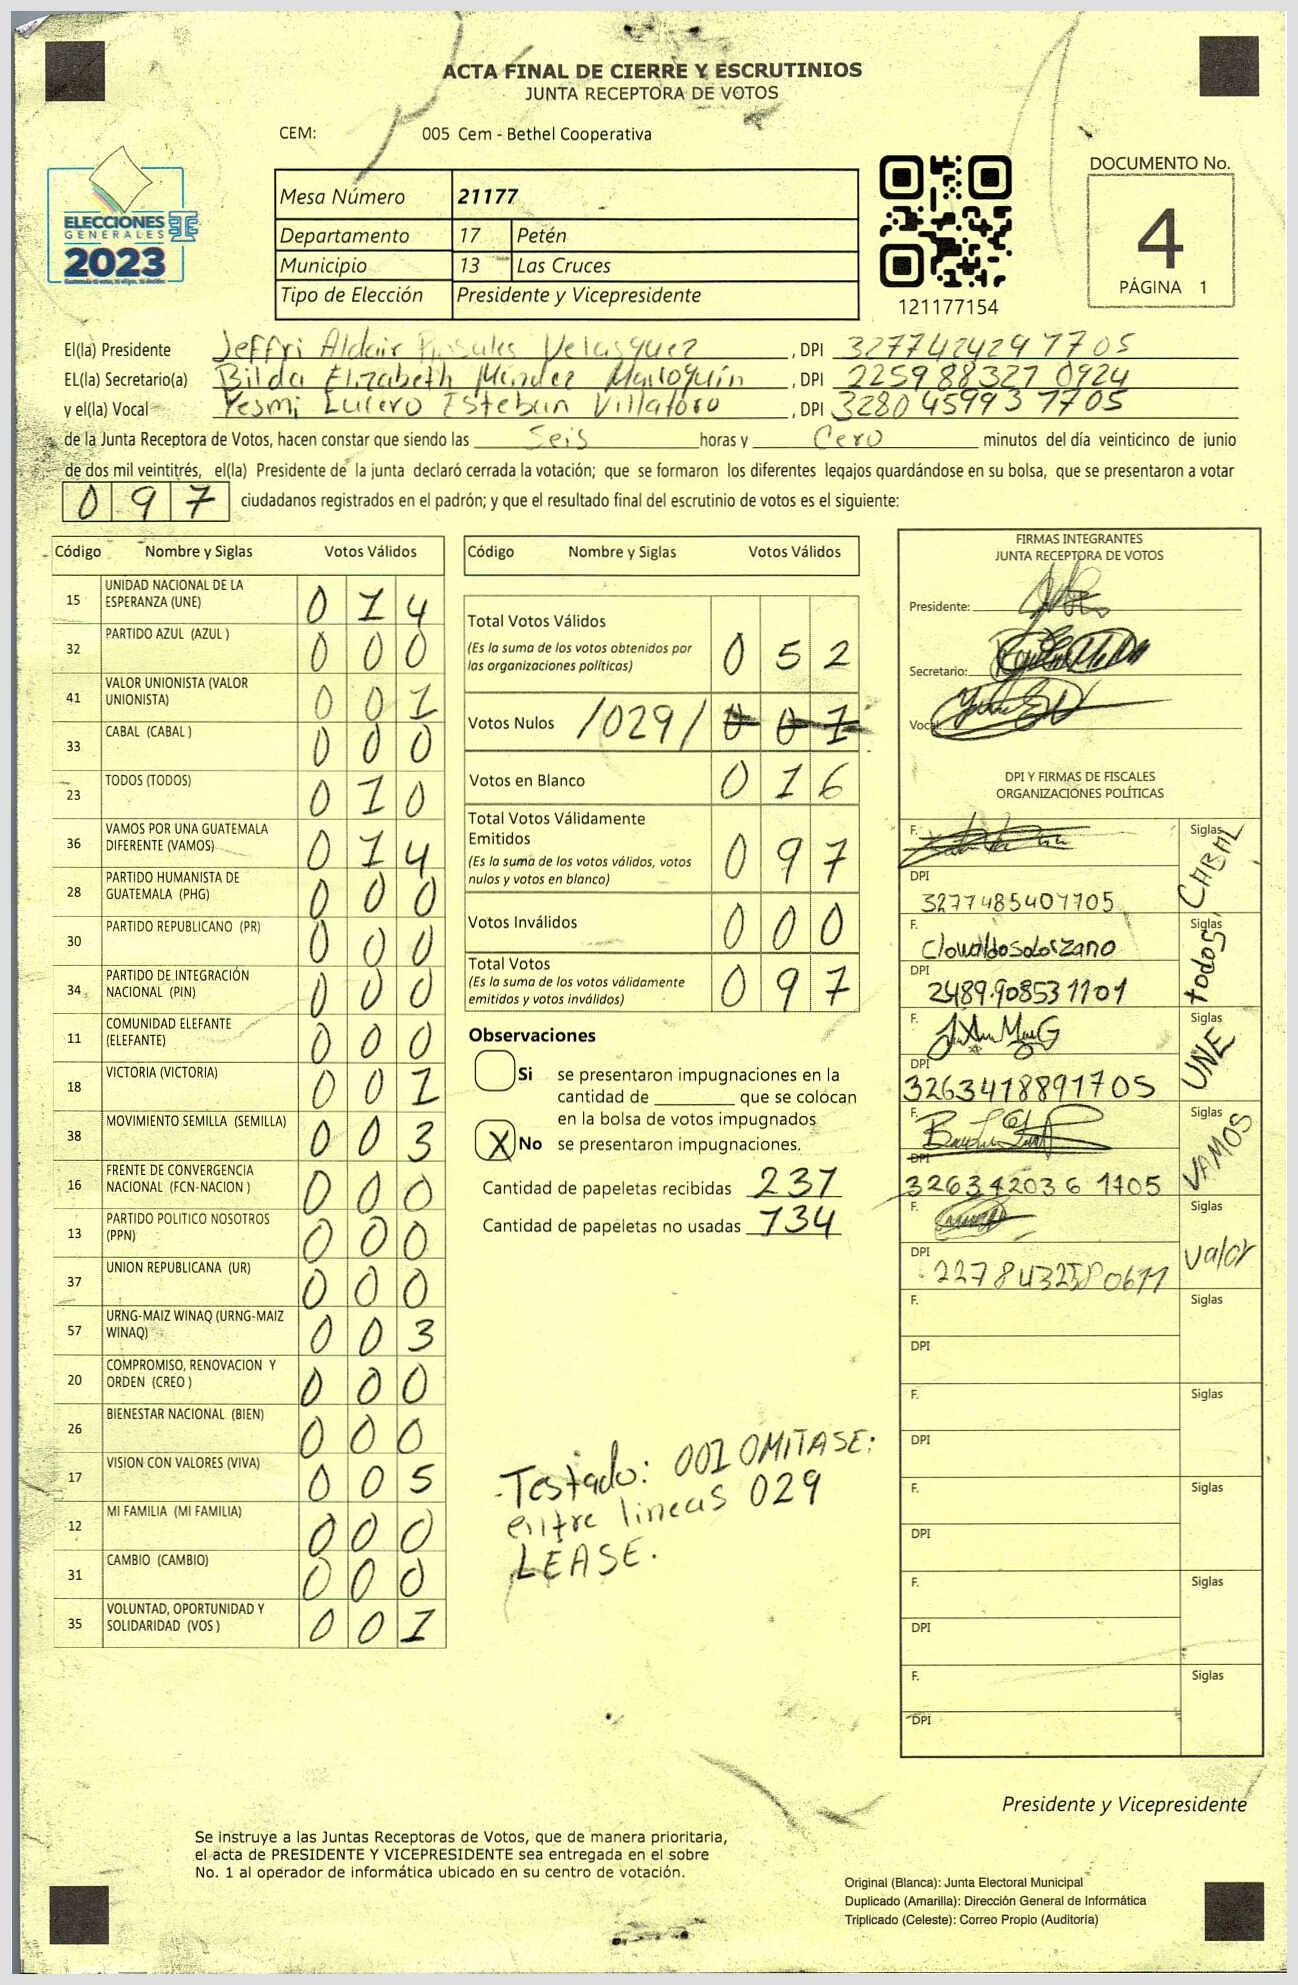 ACTA FINAL DE CIERRE Y ESCRUTINIOS
JUNTA RECEPTORA DE VOTOS
CEM: 005 Cem - Bethel Cooperativa
ELECCIONES
GENERALES
2023
Mesa Número 21177
Departamento 17 Petén
Municipio 13 Las Cruces
Tipo de Elección Presidente y Vicepresidente
121177154
DOCUMENTO No.
4
PÁGINA 1
El(la) Presidente Jeffri Aldair Rosales Velasquez, DPI 3277424297705
EL(la) Secretario(a) Bilda Elizabeth Méndez Marroquín, DPI 2259 88327 0924
y el(la) Vocal Yesmi Lucero Esteban Villatoro, DPI 3280 45993 1705
de la Junta Receptora de Votos, hacen constar que siendo las Seis horas y Cero minutos del día veinticinco de junio
de dos mil veintitrés, el(la) Presidente de la junta declaró cerrada la votación; que se formaron los diferentes legajos quardándose en su bolsa, que se presentaron a votar
097 ciudadanos registrados en el padrón; y que el resultado final del escrutinio de votos es el siguiente:
Código Nombre y Siglas Votos Válidos
15 UNIDAD NACIONAL DE LA ESPERANZA (UNE) 014
32 PARTIDO AZUL (AZUL ) 000
41 VALOR UNIONISTA (VALOR UNIONISTA) 001
33 CABAL (CABAL ) 000
23 TODOS (TODOS) 010
36 VAMOS POR UNA GUATEMALA DIFERENTE (VAMOS) 014
28 PARTIDO HUMANISTA DE GUATEMALA (PHG) 000
30 PARTIDO REPUBLICANO (PR) 000
34 PARTIDO DE INTEGRACIÓN NACIONAL (PIN) 000
11 COMUNIDAD ELEFANTE (ELEFANTE) 000
18 VICTORIA (VICTORIA) 001
38 MOVIMIENTO SEMILLA (SEMILLA) 003
16 FRENTE DE CONVERGENCIA NACIONAL (FCN-NACION ) 000
13 PARTIDO POLITICO NOSOTROS (PPN) 000
37 UNION REPUBLICANA (UR) 000
57 URNG-MAIZ WINAQ (URNG-MAIZ WINAQ) 003
20 COMPROMISO, RENOVACION Y ORDEN (CREO ) 000
26 BIENESTAR NACIONAL (BIEN) 000
17 VISION CON VALORES (VIVA) 005
12 MI FAMILIA (MI FAMILIA) 000
31 CAMBIO (CAMBIO) 000
35 VOLUNTAD, OPORTUNIDAD Y SOLIDARIDAD (VOS ) 001
Código Nombre y Siglas Votos Válidos
Total Votos Válidos 052
(Es la suma de los votos obtenidos por
las organizaciones políticas)
Votos Nulos /029/ 001
Votos en Blanco 016
Total Votos Válidamente
Emitidos 097
(Es la suma de los votos válidos, votos
nulos y votos en blanco)
Votos Inválidos 000
Total Votos 097
(Es la suma de los votos válidamente
emitidos y votos inválidos)
Observaciones
Si se presentaron impugnaciones en la
cantidad de ________ que se colocan
en la bolsa de votos impugnados
X No se presentaron impugnaciones.
Cantidad de papeletas recibidas 231
Cantidad de papeletas no usadas 134
Testado: 001 OMITASE:
entre lineas 029
LEASE.
FIRMAS INTEGRANTES
JUNTA RECEPTORA DE VOTOS
Presidente:
Secretario:
Vocal:
DPI Y FIRMAS DE FISCALES
ORGANIZACIONES POLÍTICAS
F. Siglas CABAL
DPI 3277485401705
F. Clowaldo Solorzano Siglas todos
DPI 2489.908531101
F. Siglas UNE
DPI 3263418891705
F. Siglas VAMOS
DPI 326342036 1705
F. Siglas Valor
DPI 2278432580611
F. Siglas
DPI
F. Siglas
DPI
F. Siglas
DPI
F. Siglas
DPI
F. Siglas
DPI
Presidente y Vicepresidente
Se instruye a las Juntas Receptoras de Votos, que de manera prioritaria,
el acta de PRESIDENTE Y VICEPRESIDENTE sea entregada en el sobre
No. 1 al operador de informática ubicado en su centro de votación.
Original (Blanca): Junta Electoral Municipal
Duplicado (Amarilla): Dirección General de Informática
Triplicado (Celeste): Correo Propio (Auditoría)